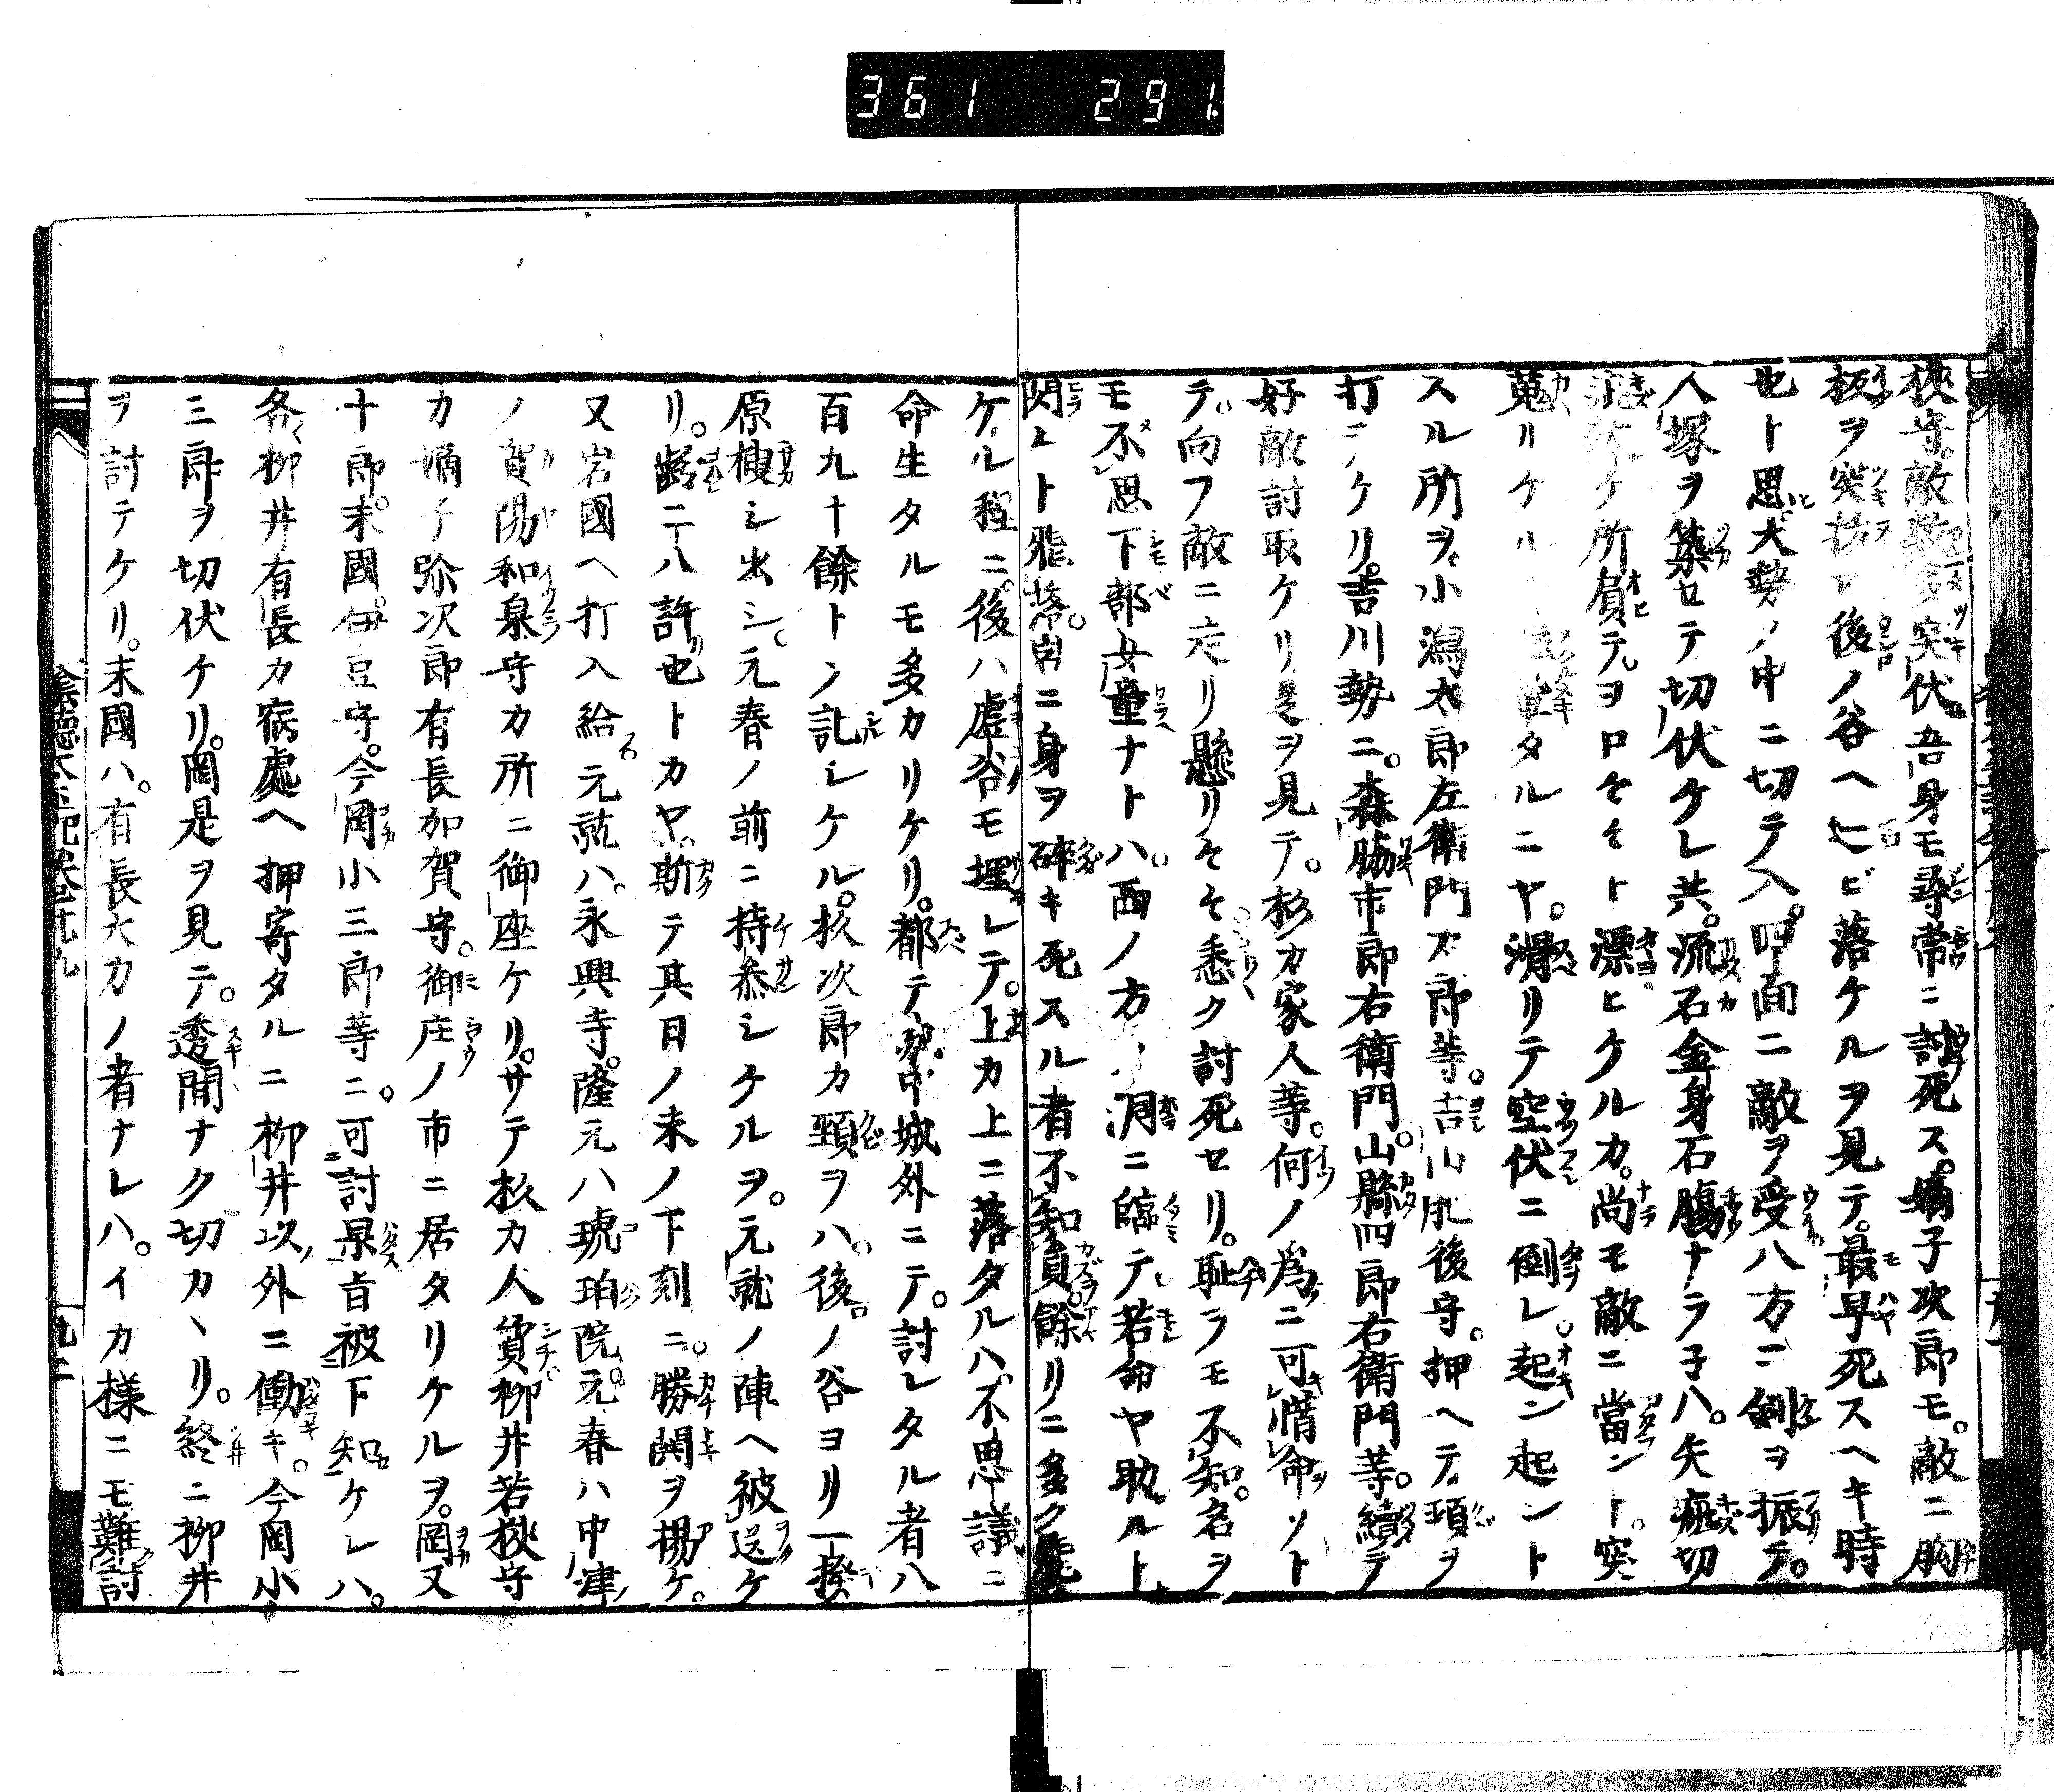 361 291
狹守敵数多突伏吾身モ尋常ニ討死ス。嫡子次郎モ。敵ニ胸
板ヲ突抜 後ノ谷ヘ ビ落ケルヲ見テ。最早死スヘキ時
也ト思大勢ノ中ニ切テ入。四面ニ敵ヲ受八方ニ剣ヲ振テ。
人塚ヲ築セテ切伏ケレ共。流石金身石腸ナラ子ハ。矢疵切
疵 ケ所負テ。ヲロ〻〻ト漂ヒケルカ。尚モ敵ニ當ント。突
蒐リケル タルニヤ。滑リテ空伏ニ倒レ。起ン起ント
スル所ヲ。小潟太郎左衛門又郎等。吉山肥後守。押ヘテ頚ヲ
打ニケリ。吉川勢ニ。森脇市郎右衛門。山縣四郎右衛門等。續テ
好敵討取ケリ是ヲ見テ。杉カ家人等。何ノ為ニ可惜命ソト
テ。向フ敵ニ走リ懸リ〻〻悉ク討死セリ。恥ヲモ不知。名ヲ
モ不思下部女童ナトハ。西ノ方ノ洞ニ臨テ若命ヤ助ルト
閃ェト飛落。自ニ身ヲ碎キ死スル者不知負。餘リニ多ク飛
ケル程ニ。後ハ虚谷モ埋レテ。上カ上ニ落タルハ、不思議ニ
命生タルモ多カリケリ。都テ 中城外ニテ。討レタル者八
百九十餘トソ記シケル。杦次郎カ頸ヲハ。後ノ谷ヨリ一揆
原捜シ出シ。元春ノ前ニ持叅シケルヲ。元就ノ陣ヘ被送ケ
リ。齢二八許也トカヤ。斯テ其日ノ未ノ下刻ニ。勝閧ヲ揚ケ。
又岩國ヘ打入給 元就ハ。永興寺。隆元ハ琥珀院。元春ハ中津
ノ賀陽和泉守カ所ニ御座ケリ。サテ杦カ人質柳井若狹守
カ嫡子弥次郎有長加賀守。御庄ノ市ニ居タリケルヲ。岡又
十郎。末國伊豆守。今岡小三郎等ニ。可討果旨被下知ケレハ。
各柳井有長カ宿處ヘ押寄タルニ柳井以外ニ働キ。今岡小
三郎ヲ切伏ケリ。岡是ヲ見テ。透間ナク切カヽリ。終ニ柳井
ヲ討テケリ。末國ハ。有長大カノ者ナレハ。イカ様ニモ難討
陰德太平記卷廿九
九二